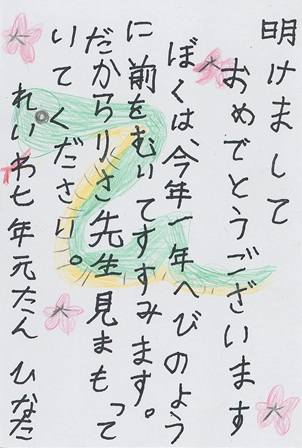 明けまして
おめでとうございます
ぼくは、今年一年へびのよう
に前をむいてすすみます。
だからりさ先生見まもって
いてください。
れいわ七年元たん ひなた